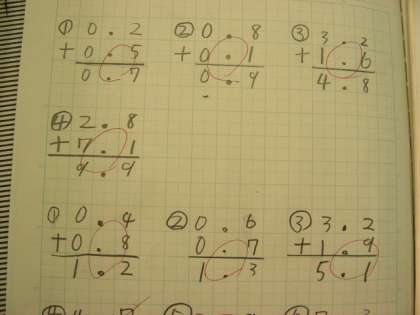 ① 0.2 ② 0.8 ③ 3.2
+ 0.5 + 0.1 + 1.6
0.7 0.9 4.8
④ 2.8
+ 7.1
9.9
① 0.4 ② 0.6 ③ 3.2
+ 0.8 0.7 + 1.9
1.2 1.3 5.1